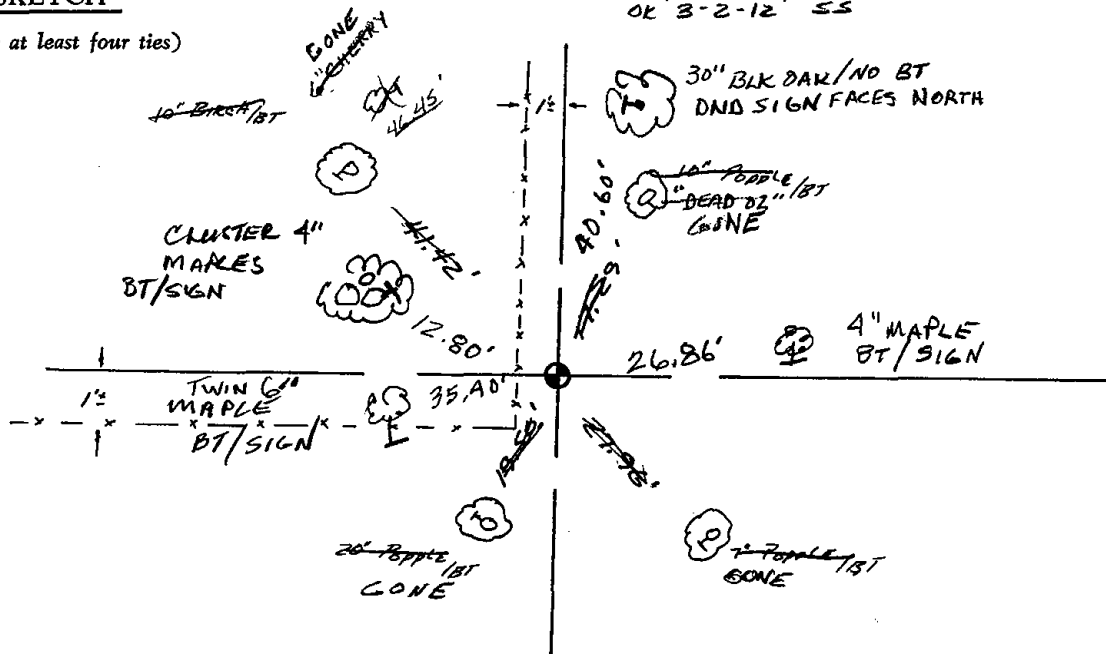 SKETCH
at least four ties)
OK 3-2-12 SS
GONE
6" CHERRY
46.45'
10" BIRCH/BT
1'±
30" BLK OAK/NO BT
DND SIGN FACES NORTH
10" POPPLE/BT
"DEAD 02"
GONE
40.60'
41.42'
CLUSTER 4"
MAPLES
BT/SIGN
12.80'
26.86'
4" MAPLE
BT/SIGN
1'±
TWIN 6"
MAPLE
BT/SIGN
35.40'
27.96'
20" POPPLE/BT
GONE
7" POPPLE/BT
GONE